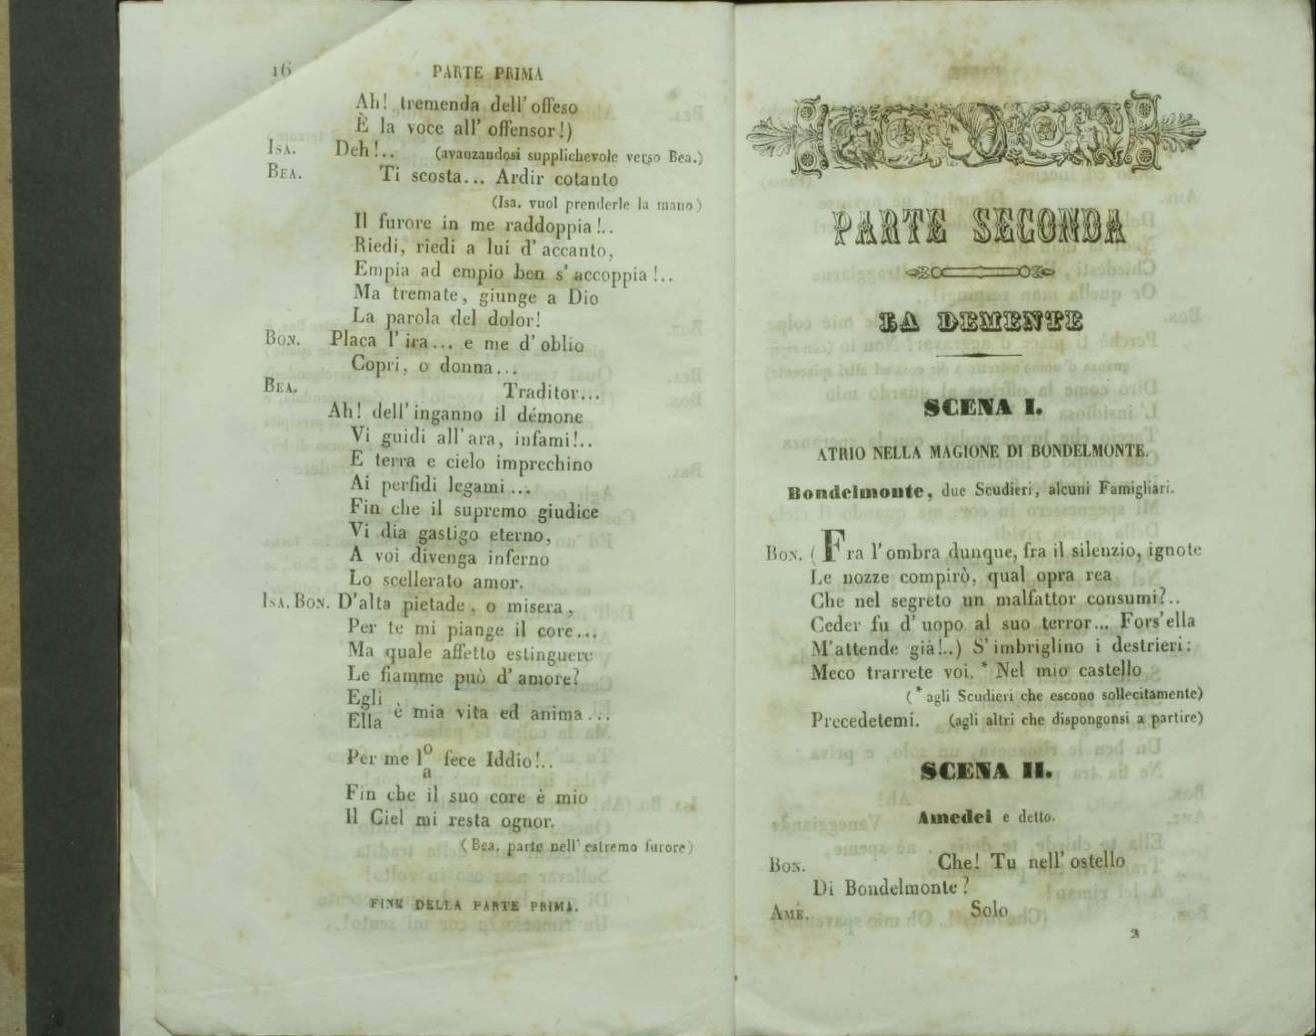 16 PARTE PRIMA
Ah! tremenda dell' offeso
È la voce all' offensor!)
Isa. Deh!.. (avanzandosi supplichevole verso Bea.)
Bea. Ti scosta... Ardir cotanto
(Isa. vuol prenderle la mano)
Il furore in me raddoppia!..
Riedi, riedi a lui d' accanto,
Empia ad empio ben s' accoppia!..
Ma tremate, giunge a Dio
La parola del dolor!
Bon. Placa l' ira... e me d' oblio
Copri, o donna...
Bea. Traditor...
Ah! dell' inganno il démone
Vi guidi all' ara, infami!..
E terra e cielo imprechino
Ai perfidi legami...
Fin che il supremo giudice
Vi dia gastigo eterno,
A voi divenga inferno
Lo scellerato amor.
Isa. Bon. D'alta pietade, o misera,
Per te mi piange il core...
Ma quale affetto estinguere
Le fiamme può d' amore?
Egli
Ella è mia vita ed anima...
Per me l o/a fece Iddio!..
Fin che il suo core è mio
Il Ciel mi resta ognor.
(Bea. parte nell' estremo furore)
FINE DELLA PARTE PRIMA.
PARTE SECONDA
LA DEMENTE
SCENA I.
ATRIO NELLA MAGIONE DI BONDELMONTE.
Bondelmonte, due Scudieri, alcuni Famigliari.
Bon. (Fra l' ombra dunque, fra il silenzio, ignote
Le nozze compirò, qual opra rea
Che nel segreto un malfattor consumi?..
Ceder fu d' uopo al suo terror... Fors' ella
M'attende già!..) S' imbriglino i destrieri:
Meco trarrete voi. * Nel mio castello
(* agli Scudieri che escono sollecitamente)
Precedetemi. (agli altri che dispongonsi a partire)
SCENA II.
Amedei e detto.
Bon. Che! Tu nell' ostello
Di Bondelmonte?
Ame. Solo
2